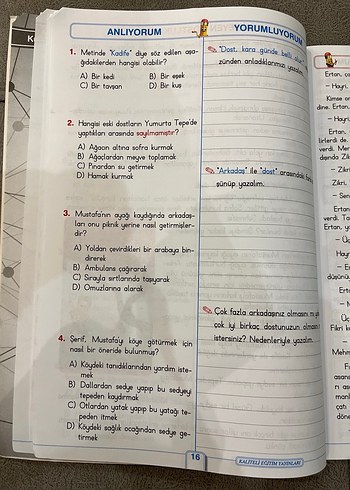 ANLIYORUM
1. Metinde "Kadife" diye söz edilen aşa-
ğıdakilerden hangisi olabilir?
A) Bir kedi
B) Bir eşek
C) Bir tavşan
D) Bir kuş
2. Hangisi eski dostların Yumurta Tepe'de
yaptıkları arasında sayılmamıştır?
A) Ağacın altına sofra kurmak
B) Ağaçlardan meyve toplamak
C) Pınardan su getirmek
D) Hamak kurmak
3. Mustafa'nın ayağı kaydığında arkadaş-
ları onu piknik yerine nasıl getirmişler-
dir?
A) Yoldan çevirdikleri bir arabaya bin-
direrek
B) Ambulans çağırarak
C) Sırayla sırtlarında taşıyarak
D) Omuzlarına alarak
4. Şerif, Mustafa'yı köye götürmek için
nasıl bir öneride bulunmuş?
A) Köydeki tanıdıklarından yardım iste-
mek
B) Dallardan sedye yapıp bu sedyeyi
tepeden kaydırmak
C) Otlardan yatak yapıp bu yatağı te-
peden itmek
D) Köydeki sağlık ocağından sedye ge-
tirmek
YORUMLUYORUM
"Dost, kara günde belli olur."
zünden anladıklarımızı yazalım.
"Arkadaş" ile "dost" arasındaki
şünüp yazalım.
Çok fazla arkadaşınız olmasını mı
çok iyi birkaç dostunuzun olmasını
istersiniz? Nedenleriyle yazalım.
16
KALİTELİ EĞİTİM YAYINLARI
Ertan,
– Hayri,
Kimse
dine. Ertan,
– Hayri
Ertan,
lirlerdi de.
verdi.
dısında
– Zikri
Zikri,
– Sen
Ertan
verdi.
Ertan,
– Üç
Hayri
– E
Ertan
Üç
Fikri
Mehm